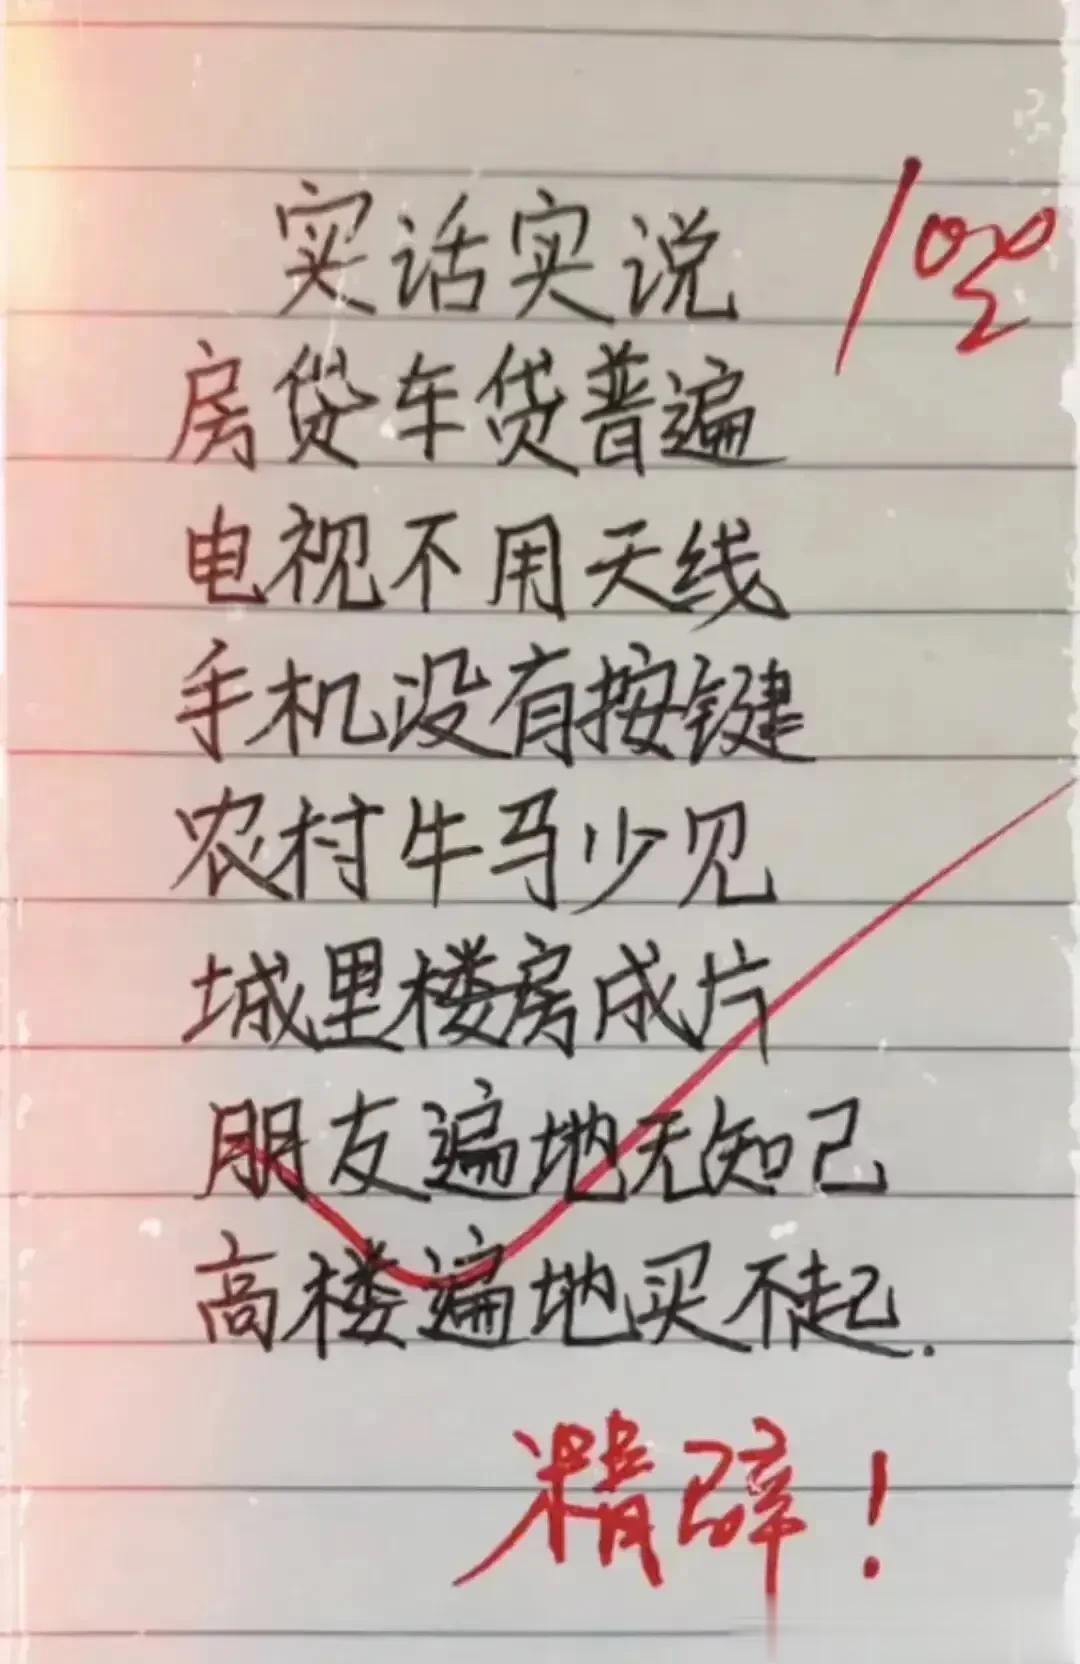 实话实说
100
房贷车贷普遍
电视不用天线
手机没有按键
农村牛马少见
城里楼房成片
朋友遍地无知己
高楼遍地买不起.
精辟!